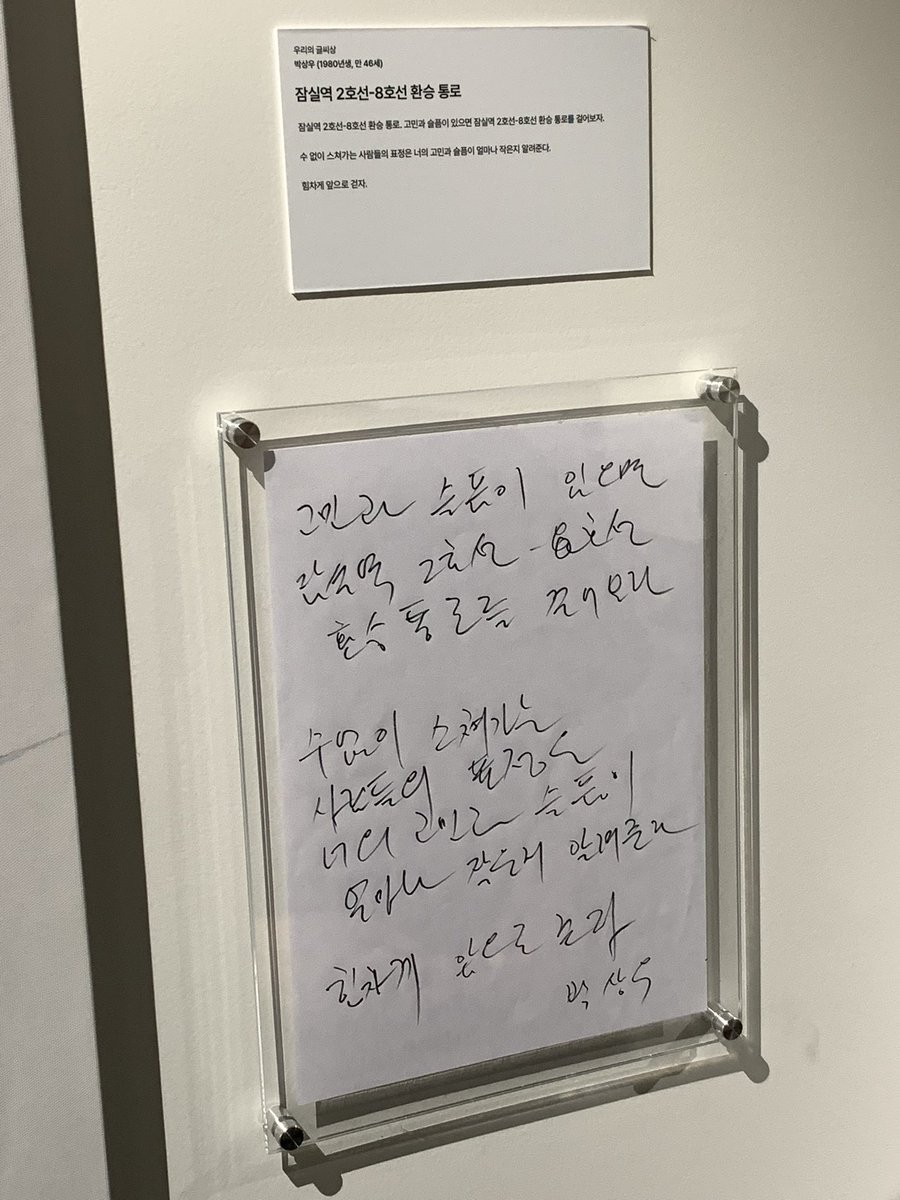 우리의 글씨상
박상우 (1980년생, 만 46세)
잠실역 2호선-8호선 환승 통로
잠실역 2호선-8호선 환승 통로. 고민과 슬픔이 있으면 잠실역 2호선-8호선 환승 통로를 걸어보자.
수 없이 스쳐가는 사람들의 표정은 너의 고민과 슬픔이 얼마나 작은지 알려준다.
힘차게 앞으로 걷자.
고민과 슬픔이 있으면
잠실역 2호선-8호선
환승 통로를 걸어보자
수없이 스쳐가는
사람들의 표정은
너의 고민과 슬픔이
얼마나 작은지 알려준다
힘차게 앞으로 걷자
박상우